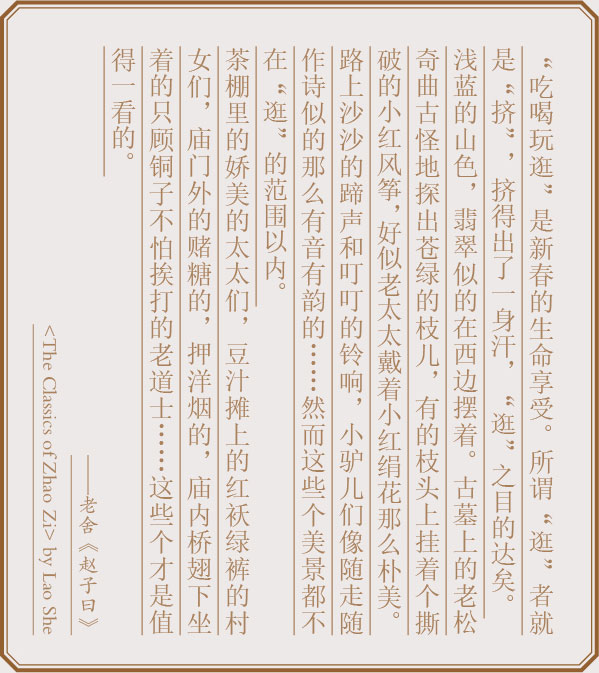 “吃喝玩逛”是新春的生命享受。所谓“逛”者就
是“挤”，挤得出了一身汗，“逛”之目的达矣。
浅蓝的山色，翡翠似的在西边摆着。古墓上的老松
奇曲古怪地探出苍绿的枝儿，有的枝头上挂着个撕
破的小红风筝，好似老太太戴着小红绢花那么朴美。
路上沙沙的蹄声和叮叮的铃响，小驴儿们像随走随
作诗似的那么有音有韵的……然而这些个美景都不
在“逛”的范围以内。
茶棚里的娇美的太太们，豆汁摊上的红袄绿裤的村
女们，庙门外的赌糖的，押洋烟的，庙内桥翅下坐
着的只顾铜子不怕挨打的老道士……这些个才是值
得一看的。
——老舍《赵子曰》
<The Classics of Zhao Zi> by Lao She